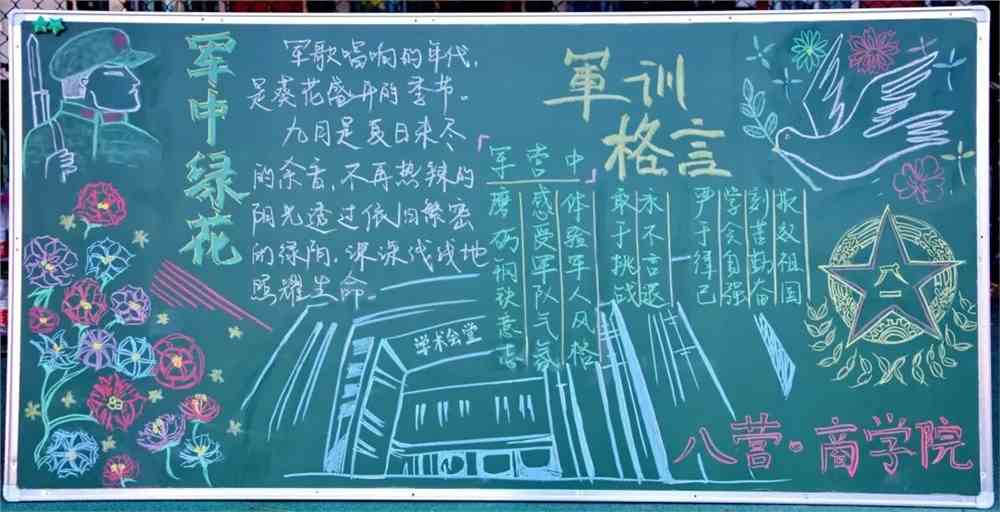 军中绿花
军歌唱响的年代,
是葵花盛开的季节。
九月是夏日未尽
的余香,不再热辣的
阳光透过依旧繁密
的绿阴,深深浅浅地
照耀生命。
軍训
格言
「军营中」
报效祖国
刻苦勤奋
学会自强
严于律己
永不言退
敢于挑战
体验军人风格
感受军队气氛
磨砺钢铁意志
学术会堂
八一
八营·商学院